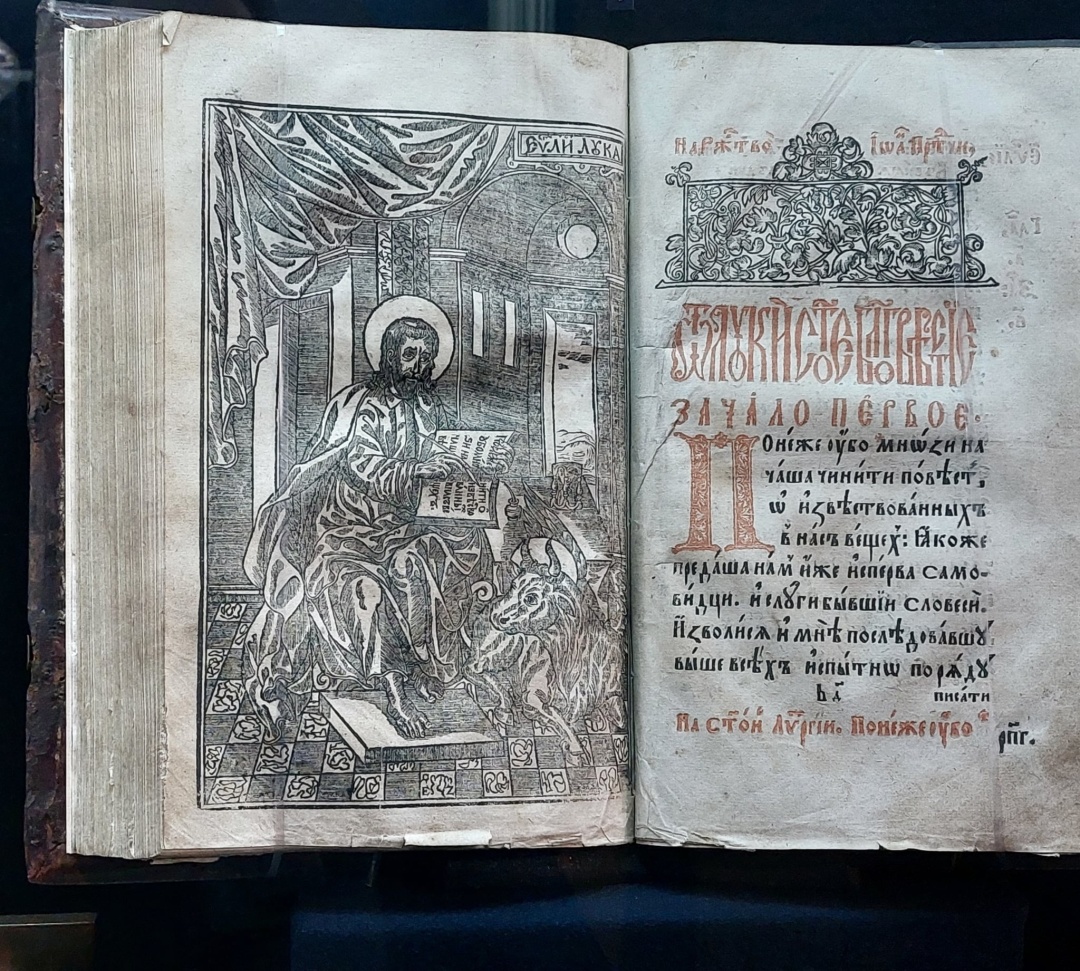 Єѵⷢ҇лі́й Лꙋка
На рⷤⷭ҇тво̀ Іѡⷩ҇а прⷣтчи
Ѿ Лꙋкѝ ст҃о́е бл҃говѣствова́нїе
зача́ло пе́рвое·
Поне́же ᲂу҆́бо мно́зи на
ча́ша чини́ти по́вѣсть,
ѡ҆ и҆звѣ́ствованныхъ
в̾ на́съ ве́щеⷯ: Ꙗ҆́коже
преда́ша наⷨ и҆̀же и҆спе́рва само-
ви́дци. и҆ слꙋгѝ бы́вшїи словесѝ.
И҆зво́лисѧ и҆ мнѣ̀ послѣ́довавшꙋ
вы́ше всѣ́хъ и҆спы́тнѡ по рѧ́дꙋ
писати
На ст҃о́й лꙋⷬ҇гі́и. Поне́же ᲂу҆́бо
рп҃г.